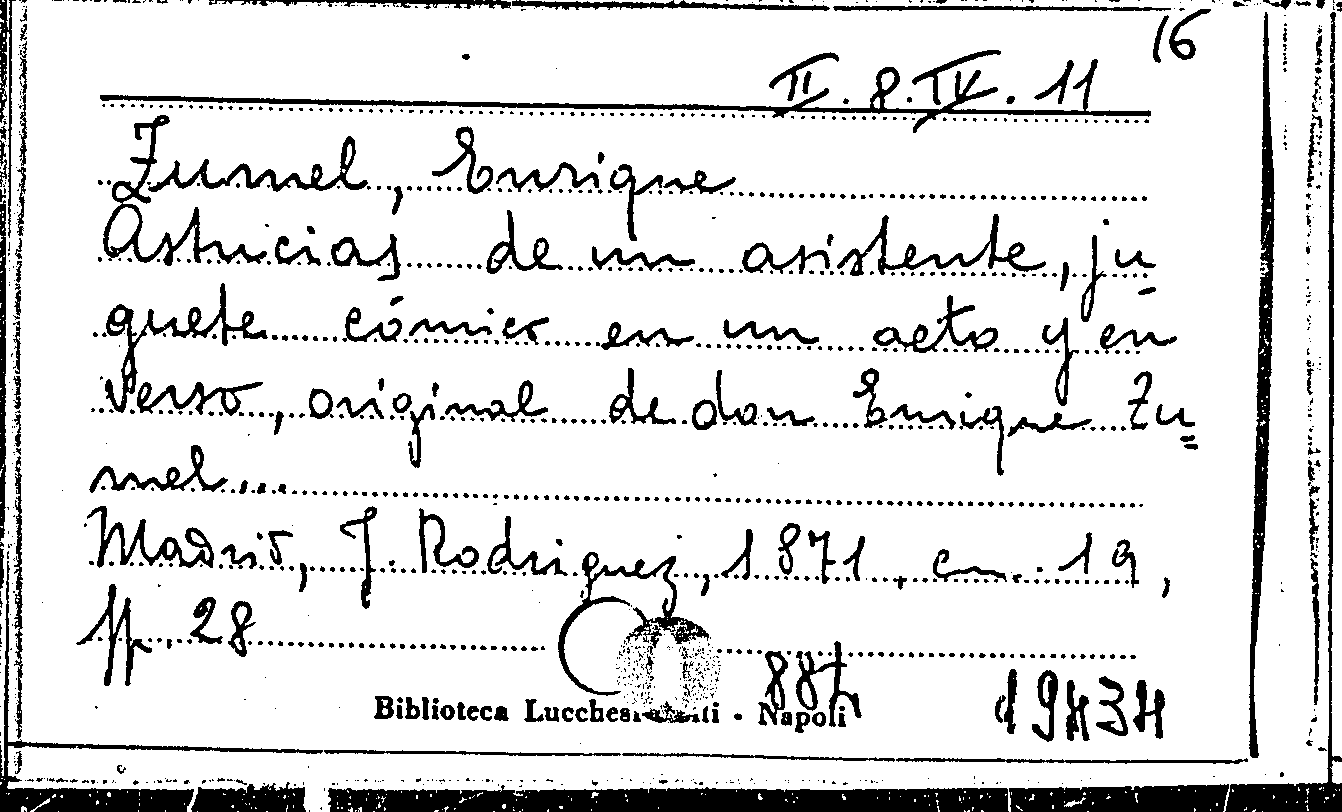 16
II. 8. IV. 11
Zumel, Enrique
Astucias de un asistente, ju-
guete cómico en un acto y en
verso, original de don Enrique Zu=
mel...
Madrid, J. Rodriguez, 1871, cm. 19,
pp. 28
Biblioteca Lucchesi - Napoli
19434